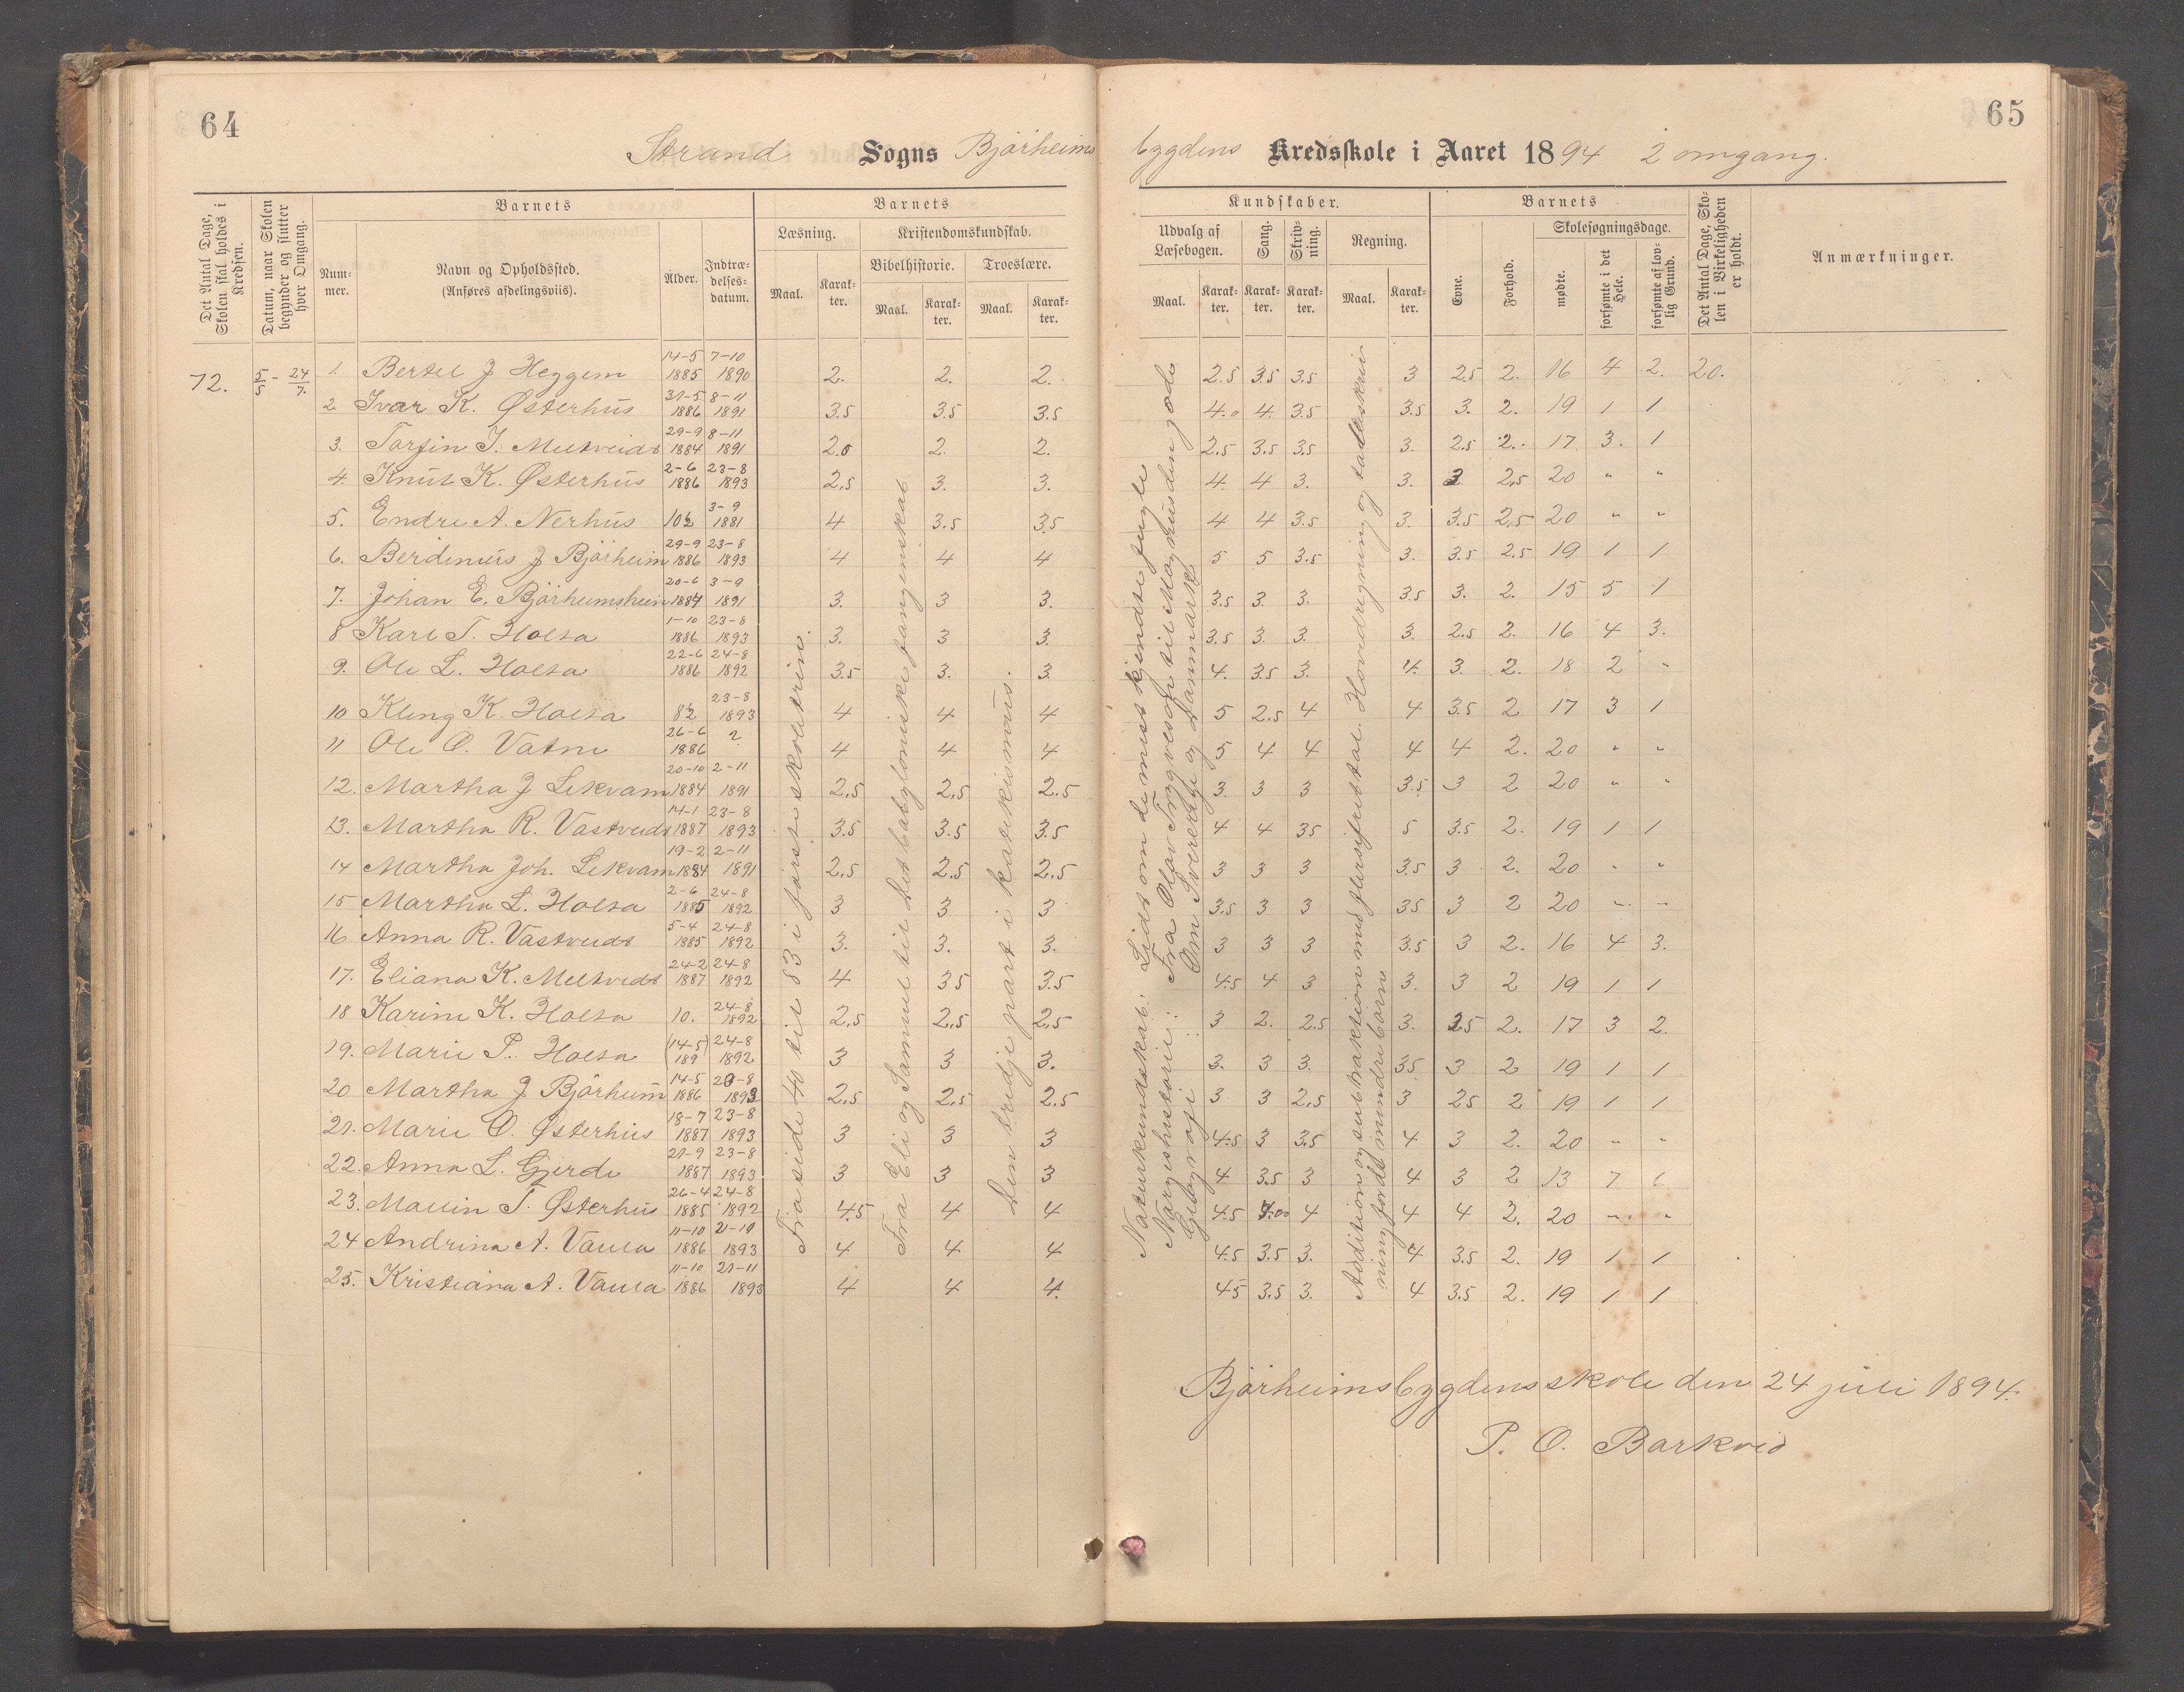 64
Strand Sogns Bjørheims
Det Antal Dage, Skolen skal holdes i Kredsen.
Datum, naar Skolen begynder og slutter hver Omgang.
Barnets
Barnets
Nummer.
Navn og Opholdssted. (Anføres afdelingsviis).
Alder.
Indtrædelsesdatum.
Læsning.
Kristendomskundskab.
Bibelhistorie.
Troeslære.
Maal.
Karakter.
Maal.
Karakter.
Maal.
Karakter.
72. 5/5 - 24/7.
1. Bertel J Heggem 14-5 1885 7-10 1890 2. 2. 2.
2. Ivar K. Østerhus 31-5 1886 8-11 1891 3.5 3.5 3.5
3. Torfin T. Meltveidt 29-9 1884 8-11 1891 2.0 2. 2.
4. Knut K. Østerhus 2-6 1886 23-8 1893 2.5 3. 3.
5. Endre A. Nerhus 10½ 3-9 1881 4 3.5 3.5
6. Berdinius J Bjørheim 29-9 1886 23-8 1893 4 4 4
7. Johan E. Bjørheimsheim 20-6 1884 3-9 1891 3. 3 3.
8 Karl T. Holta 1-10 1886 23-8 1893 3. 3 3.
9. Ole L. Holta 22-6 1886 24-8 1892 3.5 3. 3
10 Kling K. Holta 8½ 23-8 1893 4 4 4
11 Ole O. Vatne 26-6 1886 2 4 4 4
12. Martha J Lekvam 20-10 1884 2-11 1891 2.5 2.5 2.5
13. Martha R. Vastveidt 14-1 1887 23-8 1893 3.5 3.5 3.5
14 Martha Joh. Lekvam 19-2 1884 2-11 1891 2.5 2.5 2.5
15 Martha L. Holta 2-6 1885 24-8 1892 3 3 3
16 Anna R. Vastveidt 5-4 1885 24-8 1892 3. 3. 3.
17. Eliana K. Meltveidt 24-2 1887 24-8 1892 4 3.5 3.5
18 Karine K. Holta 10. 24-8 1892 2.5 2.5 2.5
19. Marie P. Holta (14-5) 189 24-8 1892 3 3 3.
20 Martha J Bjørheim 14-5 1886 23-8 1893 2.5 2.5 2.5
21. Marie O. Østerhus 18-7 1887 23-8 1893 3 3 3
22. Anna L. Gjerde 21-9 1887 23-8 1893 3 3 3
23. Mallin T. Østerhus 26-4 1885 24-8 1892 4.5 4 4
24 Andrina A. Vaula 11-10 1886 21-11 1893 4 4 4
25. Kristiana A. Vaula 11-10 1886 21-11 1893 4 4 4.
Fra side 40 til 83 i første skoletrin.
Fra Eli og Samuel til det babyloniske fangenskab
Den tredje part i katekismus.
65
bygdens Kredsskole i Aaret 1894 2 omgang.
Kundskaber.
Barnets
Udvalg af Læsebogen.
Sang.
Skrivning.
Regning.
Maal.
Karakter.
Karakter.
Karakter.
Maal.
Karakter.
Evne.
Forhold.
Skolesøgningsdage.
mødte.
forsømte i det Hele.
forsømte af lovlig Grund.
Det Antal Dage, Skolen i Virkeligheden er holdt.
Anmærkninger.
2.5 3.5 3.5 3 2.5 2. 16 4 2. 20.
4.0 4. 3.5 3.5 3. 2. 19 1 1
2.5 3.5 3.5 3. 2.5 2. 17 3. 1
4. 4 3. 3. 3 2.5 20 " "
4 4 3.5 3. 3.5 2.5 20 " "
5 5 3.5 3. 3.5 2.5 19 1 1
3.5 3. 3. 3.5 3. 2. 15 5 1
3.5 3. 3. 3. 2.5 2. 16 4 3.
4. 3.5 3. 4. 3. 2. 18 2 "
5 2.5 4 4 3.5 2 17 3 1
5 4 4 4 4 2. 20 " "
3. 3 3 3.5 3 2 20 " "
4 4 3.5 5 3.5 2. 19 1 1
3 3 3 3.5 3 2. 20 " "
3.5 3 3 3.5 3 2 20 " "
3 3 3 3.5 3 2. 16 4 3.
4.5 4 3 3. 3 2 19 1 1
3 2. 2.5 3. 2.5 2. 17 3 2.
3. 3 3. 3.5 3 2 19 1 1
3 3 2.5 3 2.5 2 19 1 1
4.5 3 3.5 4 3 2. 20 " "
4 3.5 3 4 3 2 13 7 6
4.5 4.00 4 4 4 2. 20 " "
4.5 3.5 3. 4 3.5 2. 19 1 1
4.5 3.5 3. 4 3.5 2. 19 1 1
Naturkundskab: Lidt om de mest kjendte fugle
Norgeshistorie: Fra Olav Trygvesøn til Magnus den gode
Geografi: Om Svererige og Danmark
Addition og subtraktion med flersifret tal. Hovedregning og tavleskrivning fordt mindre børn
Bjørheimsbygdens skole den 24 juli 1894.
P. O. Barkved